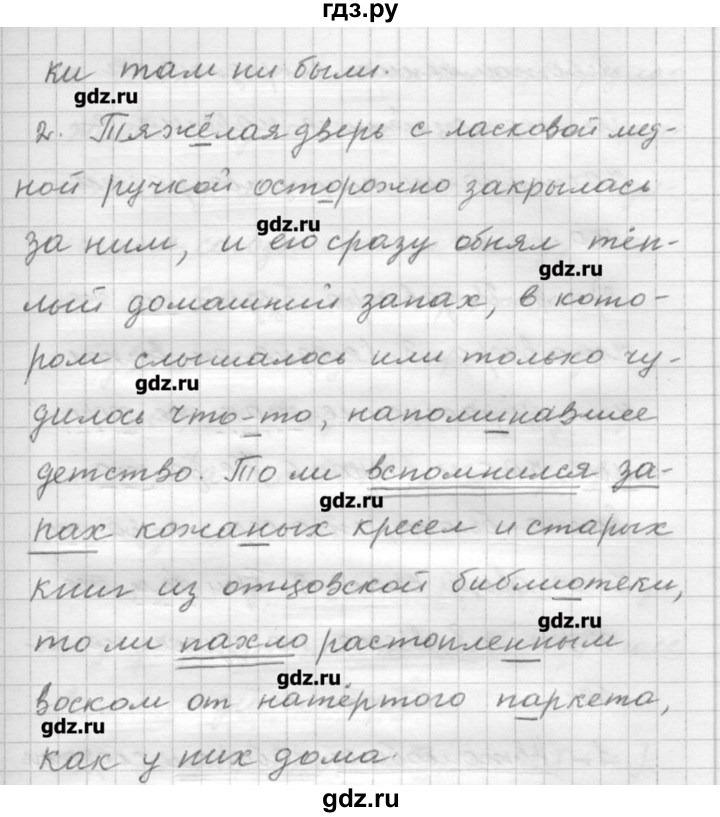 гдз.ру
ки там ни были.
gdz.ru
2. Тяжёлая дверь с ласковой мед-
ной ручкой осторожно закрылась
gdz.ru
за ним, и его сразу обнял тёп-
gdz.ru
лый домашний запах, в кото-
ром слышалось или только чу-
gdz.ru
дилось что-то, напоминавшее
детство. То ли вспомнился за-
gdz.ru
пах кожаных кресел и старых
книг из отцовской библиотеки,
gdz.ru
то ли пахло растопленным
gdz.ru
воском от натёртого паркета,
gdz.ru
как у них дома.
gdz.ru